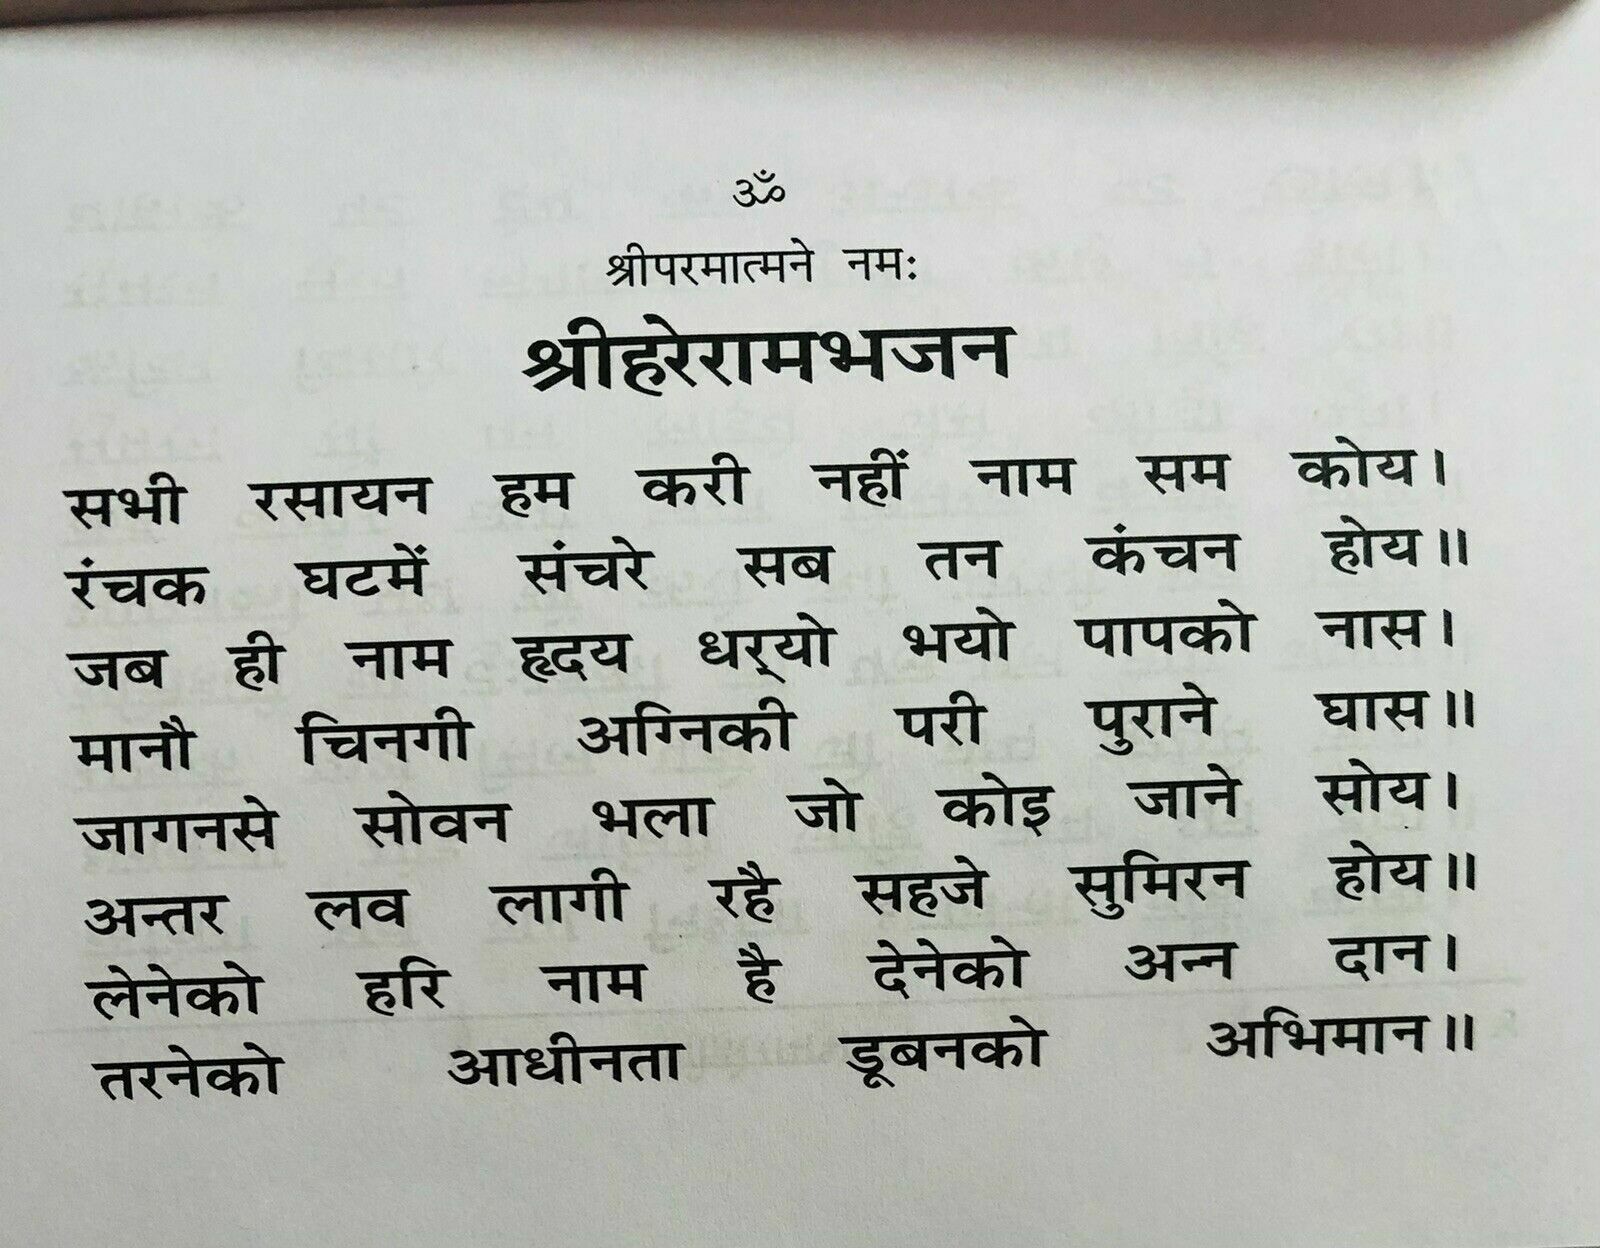 ॐ
श्रीपरमात्मने नमः
श्रीहरेरामभजन
सभी रसायन हम करी नहीं नाम सम कोय।
रंचक घटमें संचरे सब तन कंचन होय॥
जब ही नाम हृदय धर्‌यो भयो पापको नास।
मानौ चिनगी अग्निकी परी पुराने घास॥
जागनसे सोवन भला जो कोइ जाने सोय।
अन्तर लव लागी रहै सहजे सुमिरन होय॥
लेनेको हरि नाम है देनेको अन्न दान।
तरनेको आधीनता डूबनको अभिमान॥